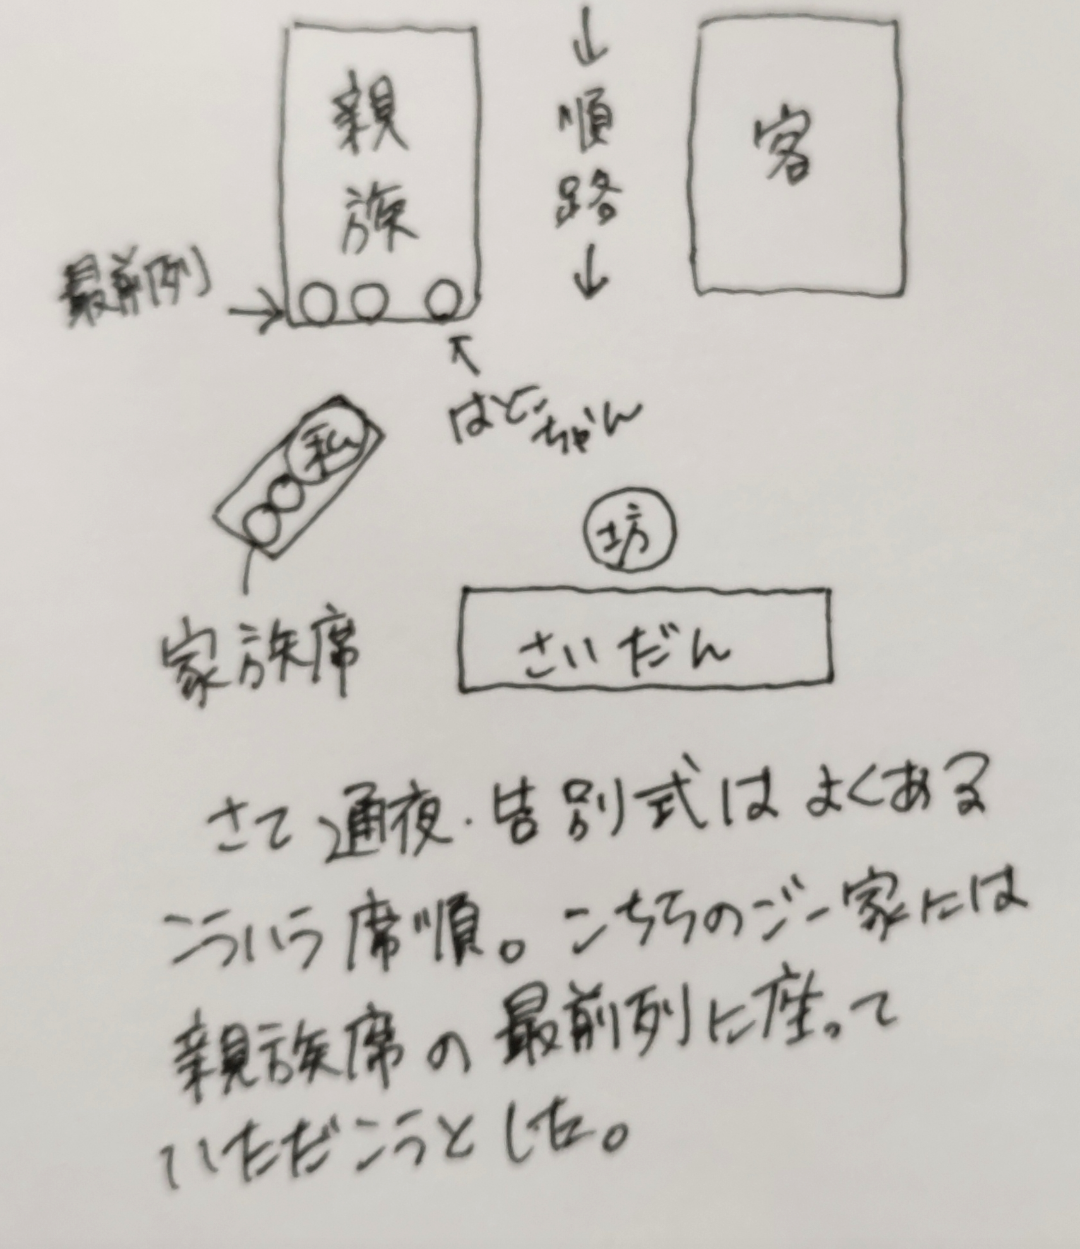 親族
↓順路↓
客
最前列→
↑
はとこちゃん
私
坊
家族席
さいだん
さて通夜・告別式はよくある
こういう席順。こちらのご一家には
親族席の最前列に座って
いただこうとした。